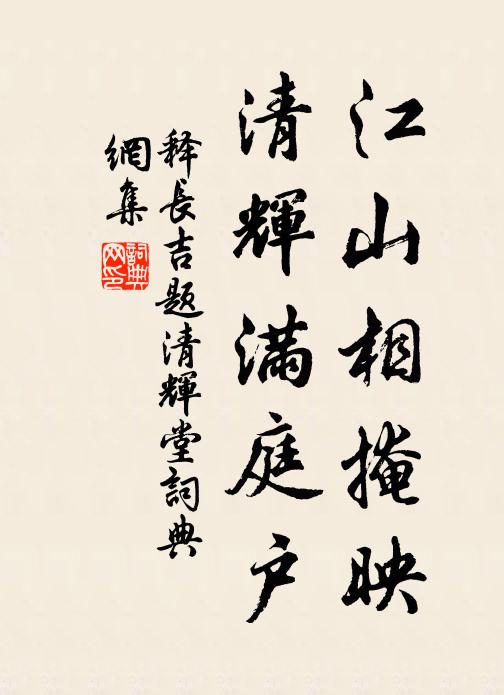 江山相掩映
清輝满庭户
释長吉题清輝堂詞典
網集
詞典
网印